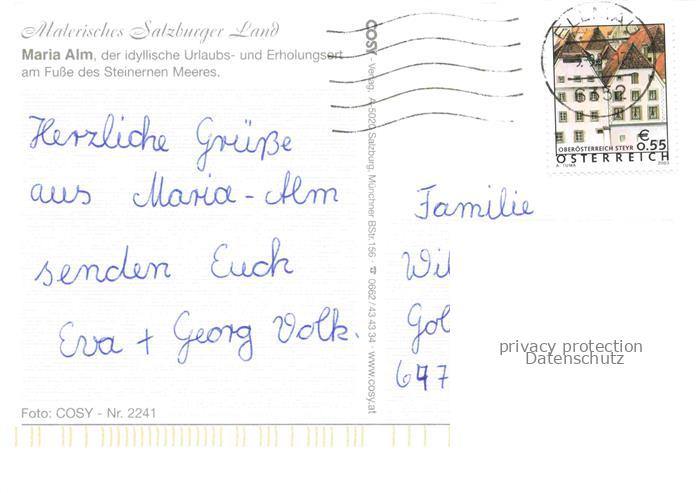 Malerisches Salzburger Land
Maria Alm, der idyllische Urlaubs- und Erholungsort
am Fuße des Steinernen Meeres.
Herzliche Grüße
aus Maria-Alm
senden Euch
Eva + Georg Volk.
Foto: COSY - Nr. 2241
COSY - Verlag, A-5020 Salzburg, Münchner BStr. 156 - ☎ 0662/43 43 34 - www.cosy.at
6352
€
0.55
OBERÖSTERREICH STEYR
ÖSTERREICH
A. TUMA 2003
Familie
Wil
Gol
647
privacy protection
Datenschutz